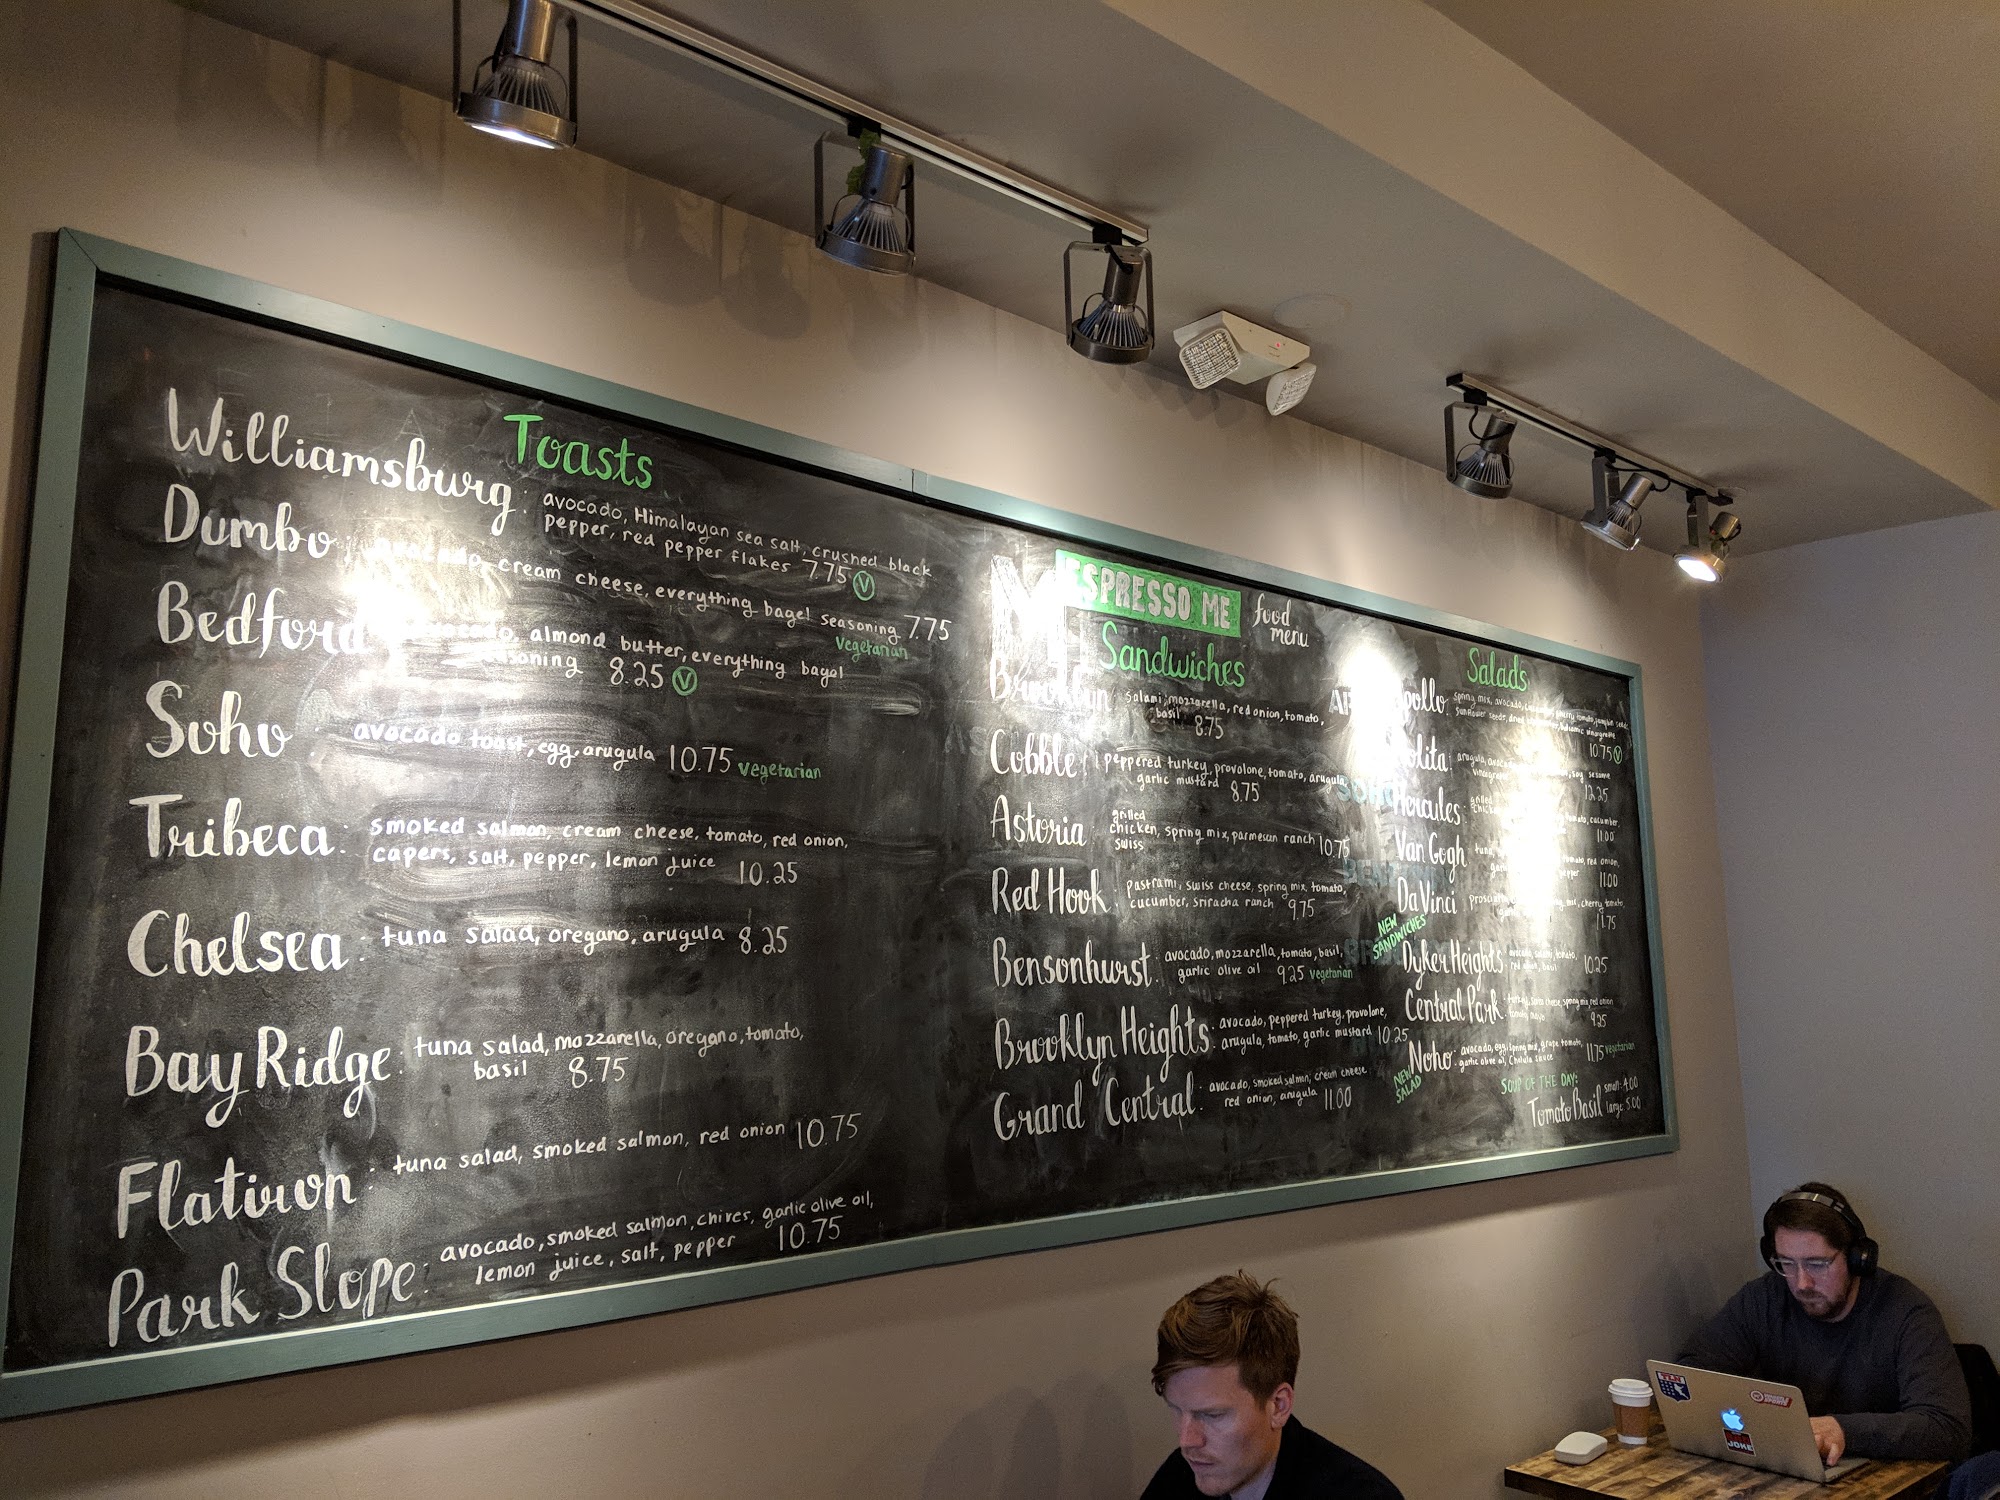 Toasts
Williamsburg: avocado, Himalayan sea salt, crushed black
pepper, red pepper flakes 7.75 V
Dumbo: avocado, cream cheese, everything bagel seasoning 7.75
vegetarian
Bedford avocado, almond butter, everything bagel
seasoning 8.25 V
Soho: avocado toast, egg, arugula 10.75 vegetarian
Tribeca: smoked salmon, cream cheese, tomato, red onion,
capers, salt, pepper, lemon juice 10.25
Chelsea: tuna salad, oregano, arugula 8.25
Bay Ridge: tuna salad, mozzarella, oregano, tomato,
basil 8.75
Flatiron: tuna salad, smoked salmon, red onion 10.75
Park Slope: avocado, smoked salmon, chives, garlic olive oil,
lemon juice, salt, pepper 10.75
ESPRESSO ME food
menu
Sandwiches
Brooklyn salami, mozzarella, red onion, tomato,
basil 8.75
Cobble: peppered turkey, provolone, tomato, arugula,
garlic mustard 8.75
Astoria: grilled
chicken, spring mix, parmesan ranch 10.75
swiss
Red Hook: pastrami, swiss cheese, spring mix, tomato,
cucumber, sriracha ranch 9.75
Bensonhurst: avocado, mozzarella, tomato, basil,
garlic olive oil 9.25 vegetarian
Brooklyn Heights: avocado, peppered turkey, provolone,
arugula, tomato, garlic mustard 10.25
Grand Central: avocado, smoked salmon, cream cheese,
red onion, arugula 11.00
Salads
Apollo: spring mix, avocado,
sunflower seeds, dried
10.75 V
arugula,
soy sesame
12.25
Hercules: grilled
cucumber,
11.00
Van Gogh: tuna,
red onion,
pepper 11.00
Da Vinci cherry tomato,
11.75
NEW
SANDWICHES
Dyker Heights avocado,
basil 10.25
Central Park: turkey, swiss cheese, spring mix, red onion
tomato, mayo 9.25
Noho: avocado, egg, spring mix, grape tomato,
garlic olive oil, Cholula sauce 11.75 vegetarian
NEW
SALAD
SOUP OF THE DAY:
Tomato Basil small: 4.00
large: 5.00
JOKE